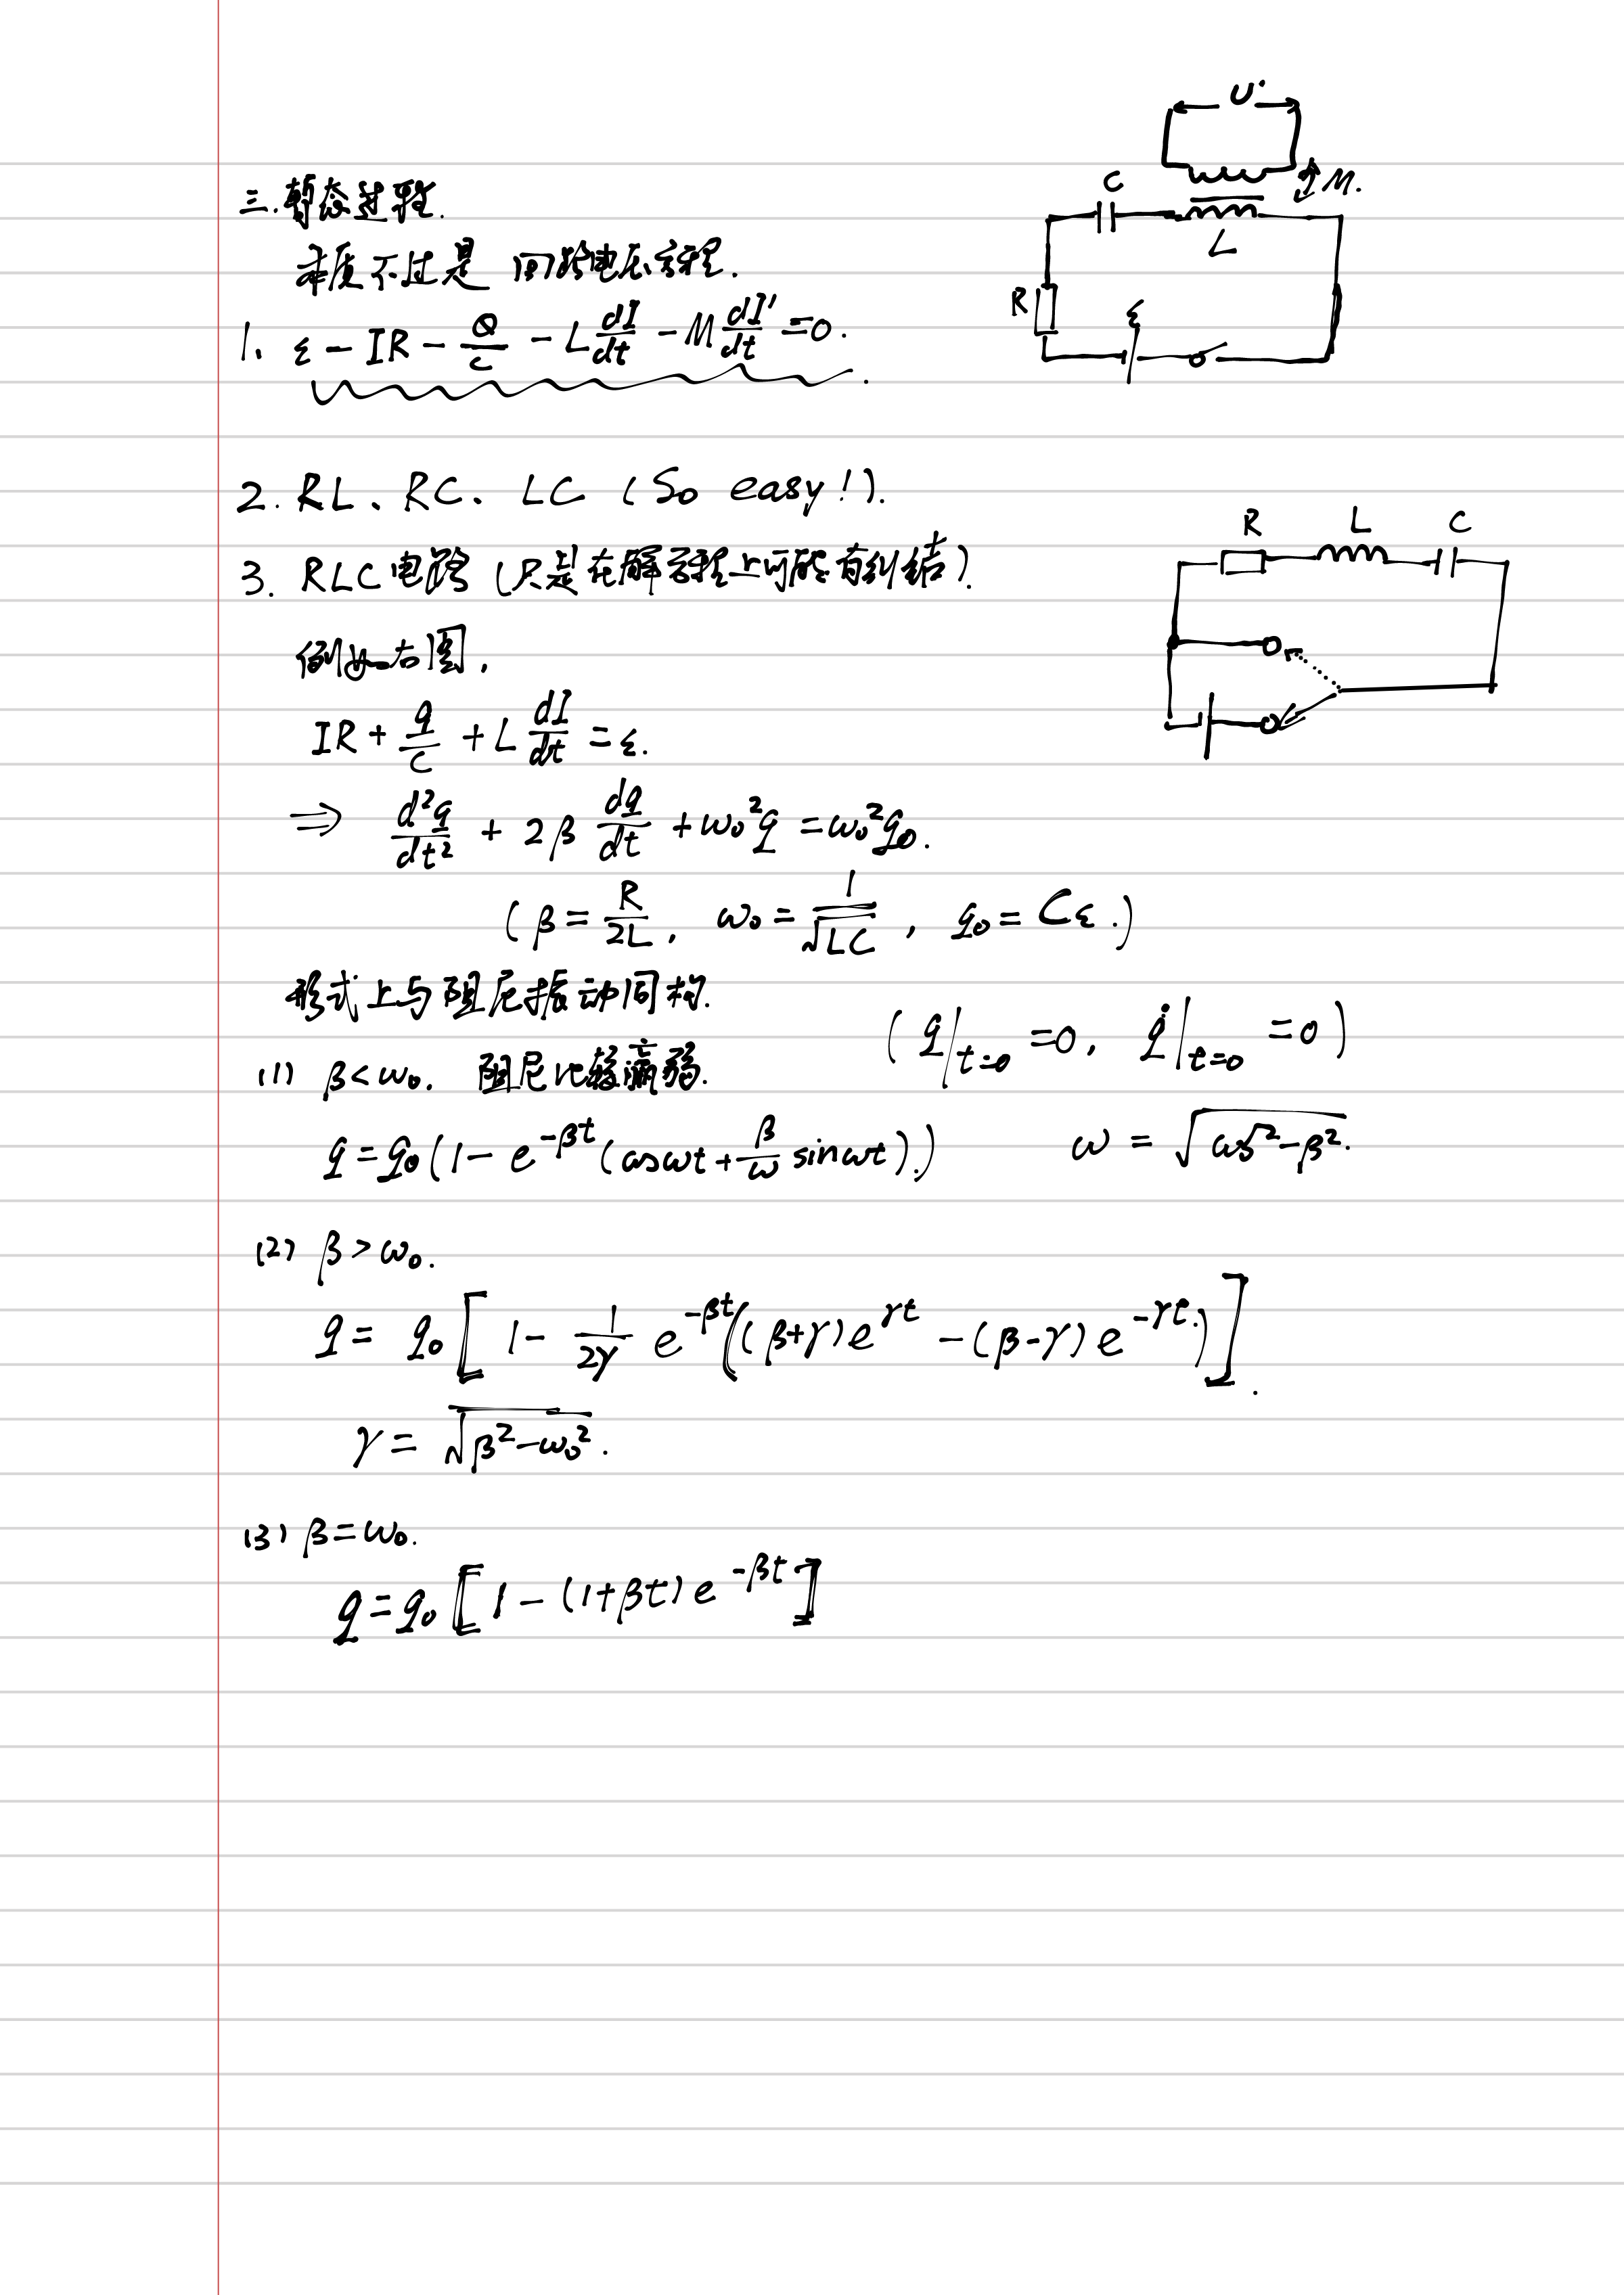 三.暂态过程.
本质不过是 回路电压方程.
1、 ε - IR - Q/C - L dI/dt - M dI'/dt = 0.
U'
M.
C
L
R
ε
2. RL、RC、LC (So easy!).
3. RLC电路 (只是在解方程上可能有纠结).
R L C
例如右图,
IR + q/C + L dI/dt = ε.
⇒ d²q/dt² + 2β dq/dt + ω₀²q = ω₀²q₀.
(β = R/2L, ω₀ = 1/√LC, q₀ = Cε.)
形式上与阻尼振动同构.
(q|t=0 = 0, q̇|t=0 = 0)
(1) β < ω₀. 阻尼比较羸弱.
q = q₀(1 - e^-βt (cosωt + β/ω sinωt).) ω = √(ω₀² - β²).
(2) β > ω₀.
q = q₀[1 - 1/2γ e^-βt((β+γ)e^γt - (β-γ)e^-γt.)].
γ = √(β² - ω₀²).
(3) β = ω₀.
q = q₀[1 - (1+βt)e^-βt]